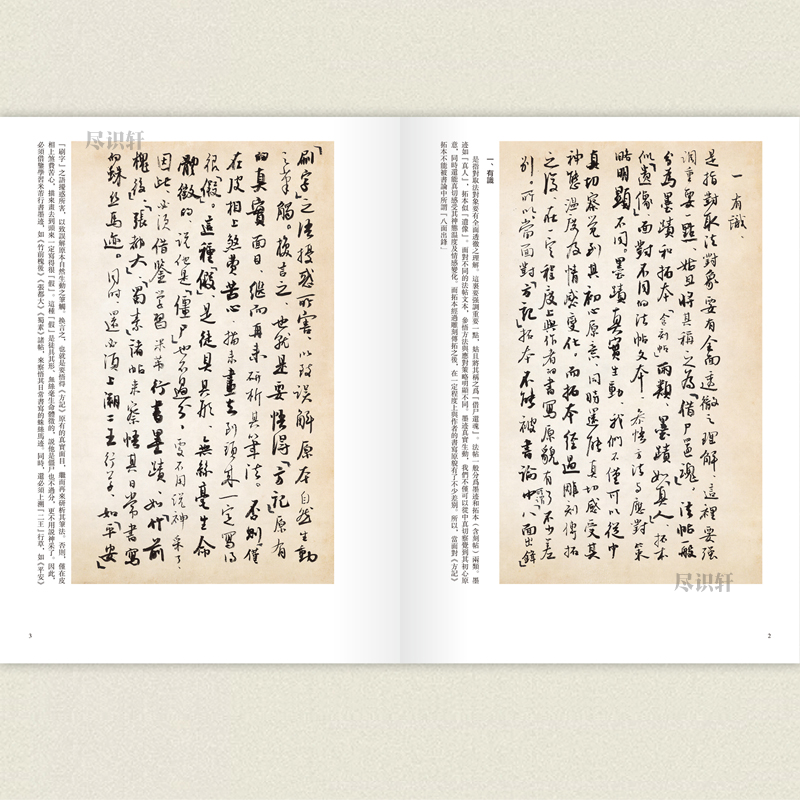 一 有識
是指對取法對象要有全面透徹之理解。這裡要强
調重要一點，姑且將其稱之為「借尸還魂」。法帖一般
分為墨蹟和拓本（含刻帖）兩類。墨蹟如「真人」，拓本
似「遺像」。面對不同的法帖文本，參悟方法與應對策
略明顯不同。墨蹟真實生動，我們不僅可以從中
真切察覺到其初心原意，同時還能真切感受其
神態温度及情感變化。而拓本經過雕刻傳拓
之後，在一定程度上與作者的書寫原貌有了不少差
别。所以當面對「方記」拓本不能被書論中所謂「八面出鋒」
一、有識
是指對取法對象要有全面透徹之理解。這裏要强調重要一點，姑且將其稱之爲「借尸還魂」。法帖一般分爲墨迹和拓本（含刻帖）兩類。墨
迹如「真人」，拓本似「遺像」。面對不同的法帖文本，參悟方法與應對策略明顯不同。墨迹真實生動，我們不僅可以從中真切察覺到其初心原
意，同時還能真切感受其神態温度及情感變化。而拓本經過雕刻傳拓之後，在一定程度上與作者的書寫原貌有了不少差别。所以，當面對《方記》
拓本不能被書論中所謂「八面出鋒」
尽识轩
2
「刷字」之法擾惑所害，以致誤解原本自然生動
之筆觸。換言之，也就是要悟得「方記」原有
的真實面目，繼而再來研析其筆法。否則，僅
在皮相上煞費苦心，描來畫去到頭來一定寫得
很「假」。這種「假」是徒具其形，無絲毫生命
體徵的，説他是「僵尸」也不過分，更不用説神采了。
因此，必須借鑒學習米芾行書墨蹟，如「竹前
槐後」「張都大」「蜀素」諸帖來察悟其日常書寫
的蛛丝馬迹。同時，還必須上溯「二王」行草，如「平安」
「刷字」之語擾惑所害，以致誤解原本自然生動之筆觸。换言之，也就是要悟得《方記》原有的真實面目，繼而再來研析其筆法。否則，僅在皮
相上煞費苦心，描來畫去到頭來一定寫得很「假」。這種「假」是徒具其形，無絲毫生命體徵的，説他是僵尸也不過分，更不用説神采了。因此，
必須借鑒學習米芾行書墨迹，如《竹前槐後》《張都大》《蜀素》諸帖，來察悟其日常書寫的蛛絲馬迹。同時，還必須上溯「二王」行草，如《平安》
尽识轩
3